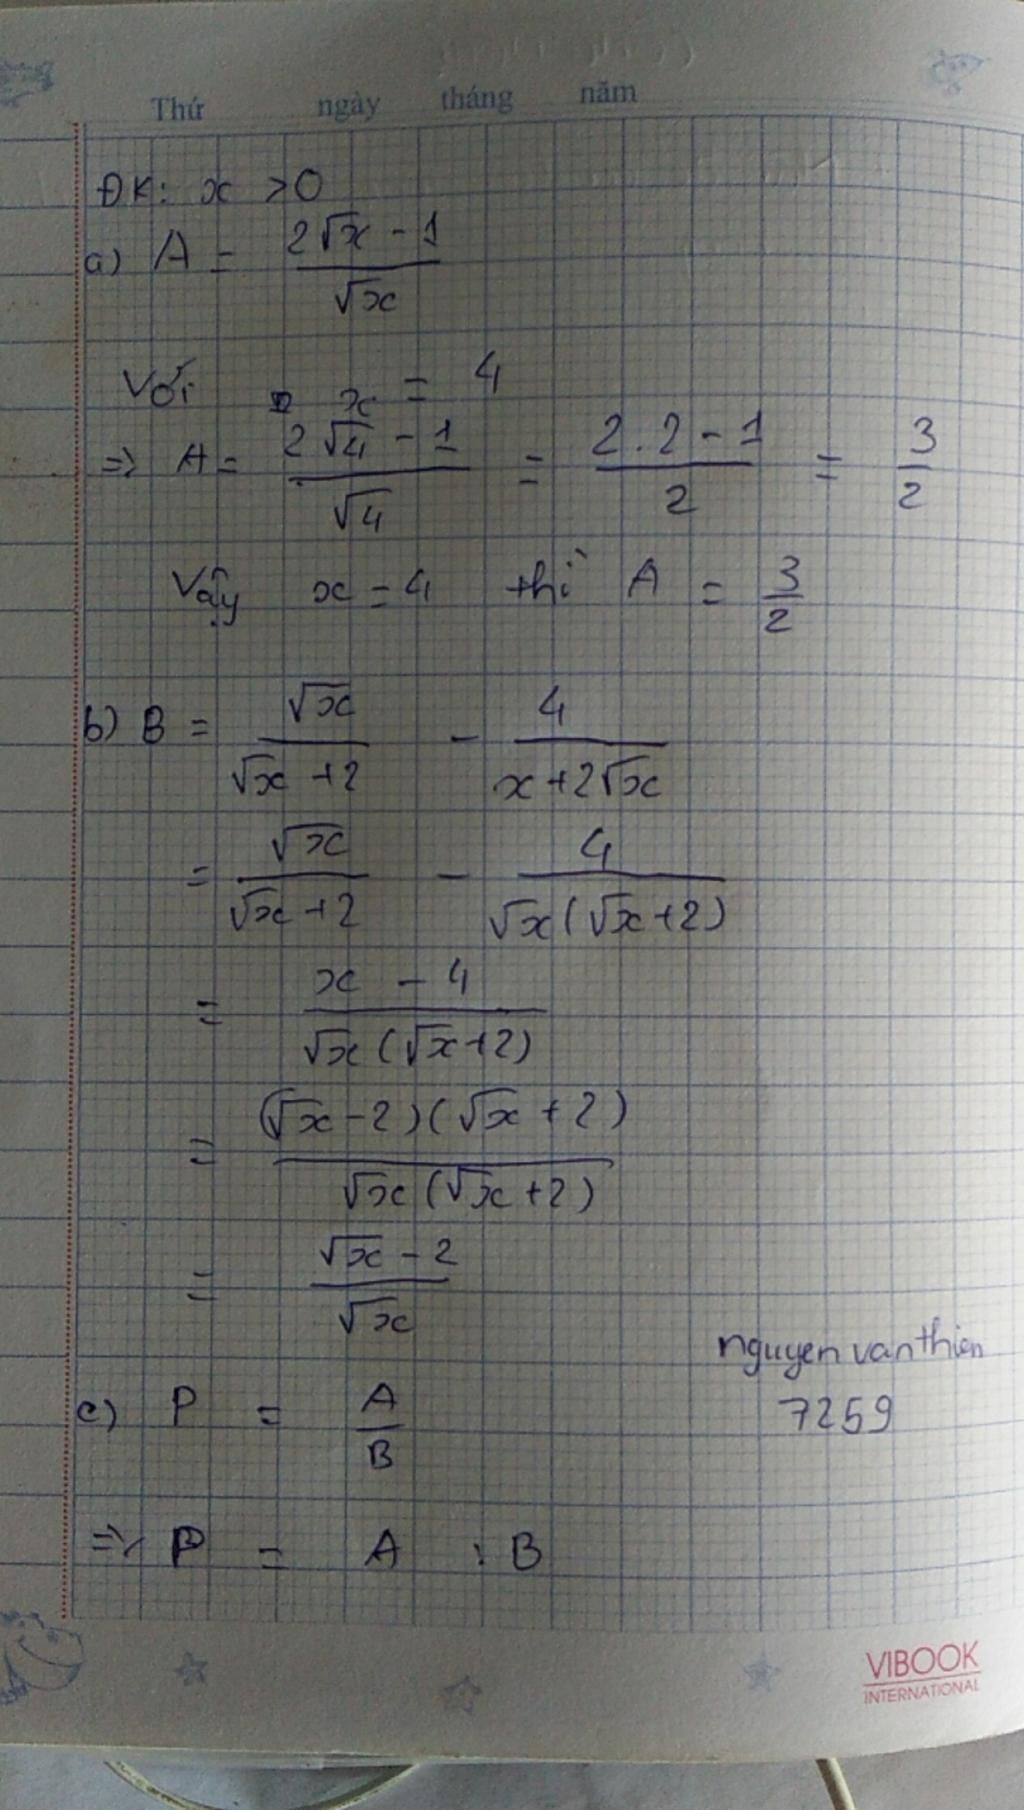 Thứ ngày tháng năm
ĐK: x > 0
a) A = (2√x - 1)/√x
Với x = 4
=> A = (2√4 - 1)/√4 = (2.2 - 1)/2 = 3/2
Vậy x = 4 thì A = 3/2
b) B = √x/(√x + 2) - 4/(x + 2√x)
= √x/(√x + 2) - 4/(√x(√x + 2))
= (x - 4)/(√x(√x + 2))
= ((√x - 2)(√x + 2))/(√x(√x + 2))
= (√x - 2)/√x
nguyen van thien
7259
c) P = A/B
=> P = A : B
VIBOOK
INTERNATIONAL